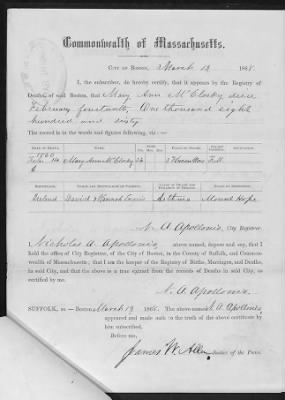 Commonwealth of Massachusetts.
CITY OF BOSTON, March 13 186
I, the subscriber, do hereby certify, that it appears by the Registry of
Deaths, of said Boston, that Mary Ann McClosky died
February fourteenth, One thousand eight
hundred and sixty
The record is in the words and figures following, viz:
1860
Feb 14 Mary Ann McClosky Fall
Ireland David & Hannah Asthma Mount Hope
N. A. Apollonio, City Registrar
Nicholas A. Apollonio, above named, depose and say, that I
hold the office of City Registrar, of the City of Boston, in the County of Suffolk, and Common-
wealth of Massachusetts; that I am the keeper of the Registry of Births, Marriages, and Deaths,
in said City, and that the above is a true extract from the records of Deaths in said City, as
certified by me.
N. A. Apollonio.
SUFFOLK, ss.—Boston March 13 186 The above-named N. A. Apollonio,
appeared and made oath to the truth of the above certificate by
him subscribed.
Before me,
James W. Allen Justice of the Peace.